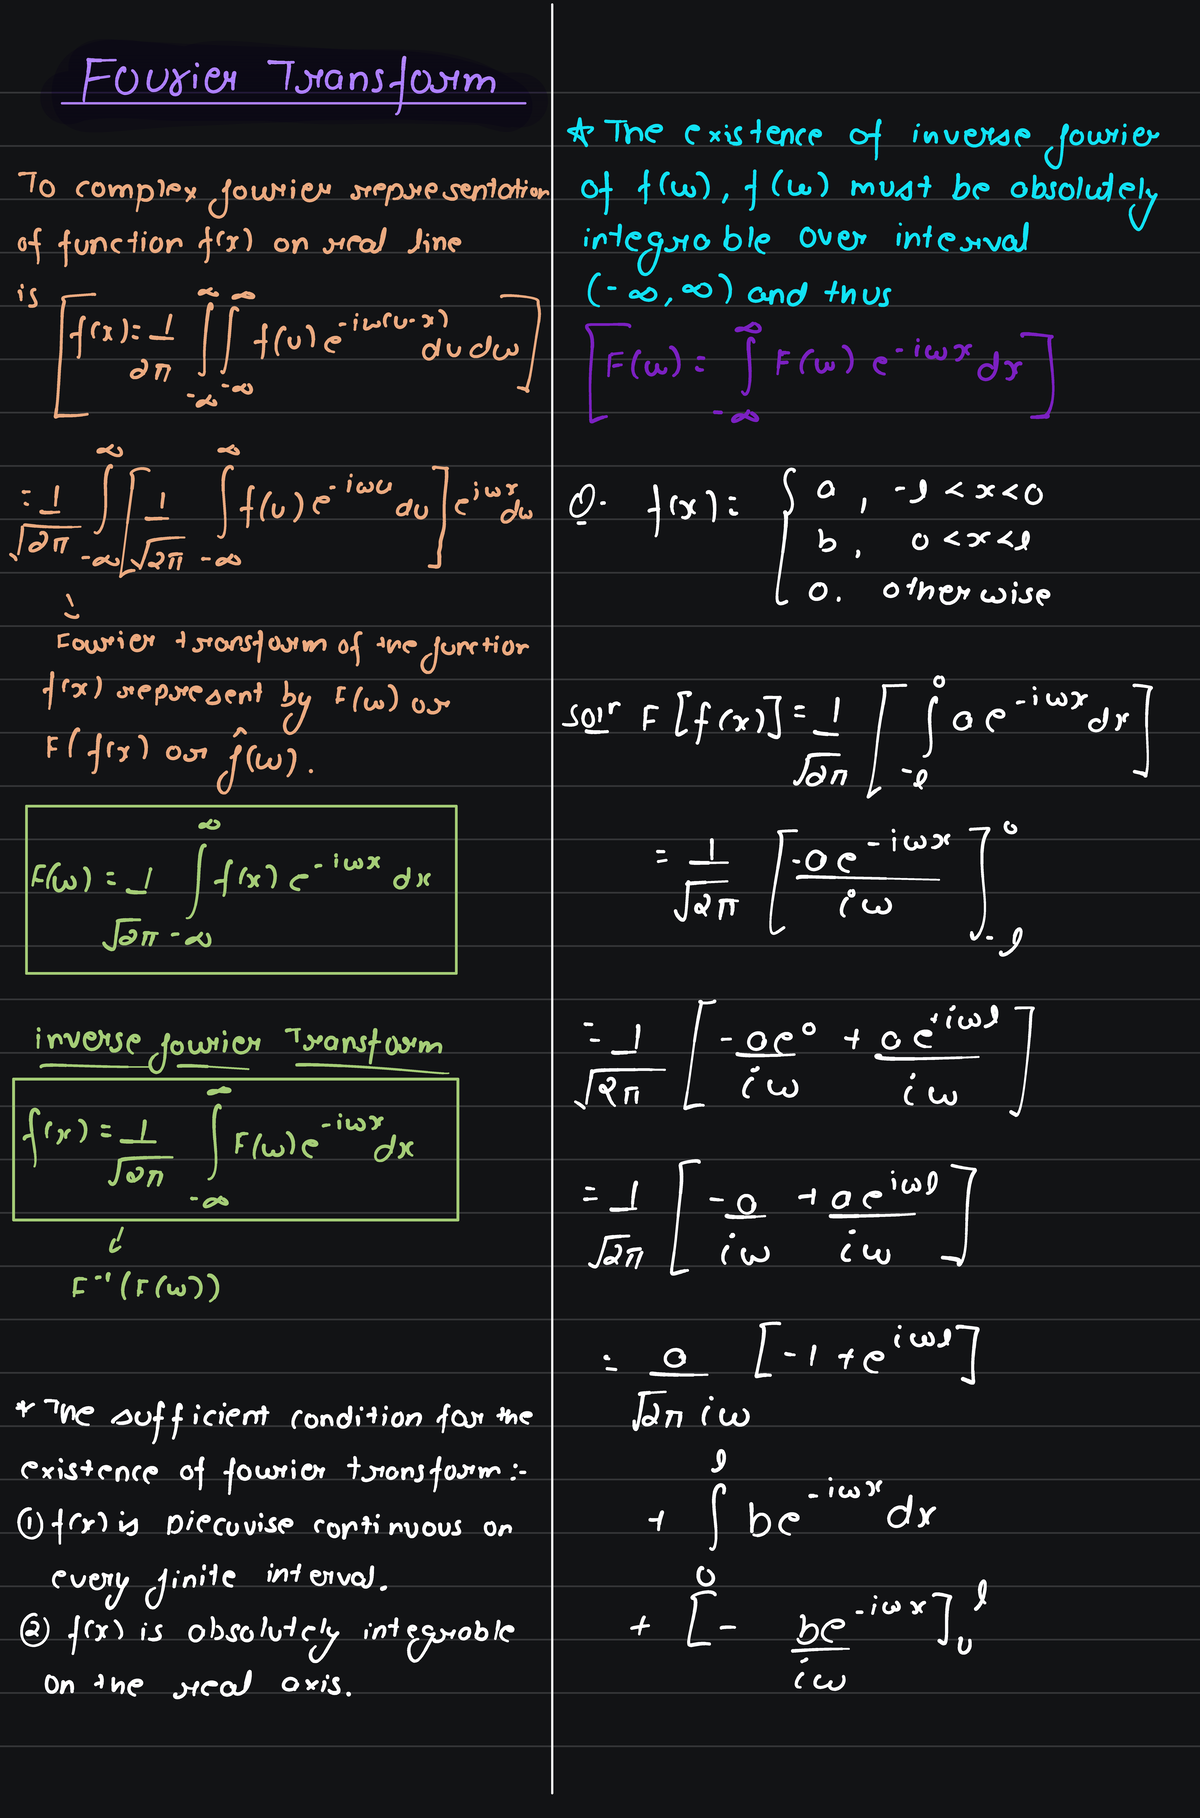 Fourier Transform
To complex fourier representation
of function f(x) on real line
is
[f(x) = 1/2π ∫_{-∞}^{∞} ∫_{-∞}^{∞} f(u) e^{-iω(u-x)} du dω]
= 1/√2π ∫_{-∞}^{∞} [1/√2π ∫_{-∞}^{∞} f(u) e^{-iωu} du] e^{iωx} dω
↓
Fourier transform of the function
f(x) represent by F(ω) or
F(f(x) or f̂(ω).
F(ω) = 1/√2π ∫_{-∞}^{∞} f(x) e^{-iωx} dx
inverse fourier Transform
f(x) = 1/√2π ∫_{-∞}^{∞} F(ω) e^{-iωx} dx
↓
F⁻¹(F(ω))
* The sufficient condition for the
existence of fourier transform :-
① f(x) is piecuvise continuous on
every finite interval.
② f(x) is absolutely integrable
on the real axis.
* The existence of inverse fourier
of f(ω), f(ω) must be absolutely
integrable over interval
(-∞, ∞) and thus
[F(ω) = ∫_{-∞}^{∞} F(ω) e^{-iωx} dx]
Q. f(x) = { a, -l < x < 0
b, 0 < x < l
0. otherwise
Solⁿ F[f(x)] = 1/√2π [∫_{-l}^{0} a e^{-iωx} dx]
= 1/√2π [-a e^{-iωx} / iω]_{-l}^{0}
= 1/√2π [-a e^0 / iω + a e^{+iωl} / iω]
= 1/√2π [-a / iω + a e^{iωl} / iω]
= a / √2π iω [-1 + e^{iωl}]
+ ∫_{0}^{l} b e^{-iωx} dx
+ [- b e^{-iωx} / iω]_{0}^{l}